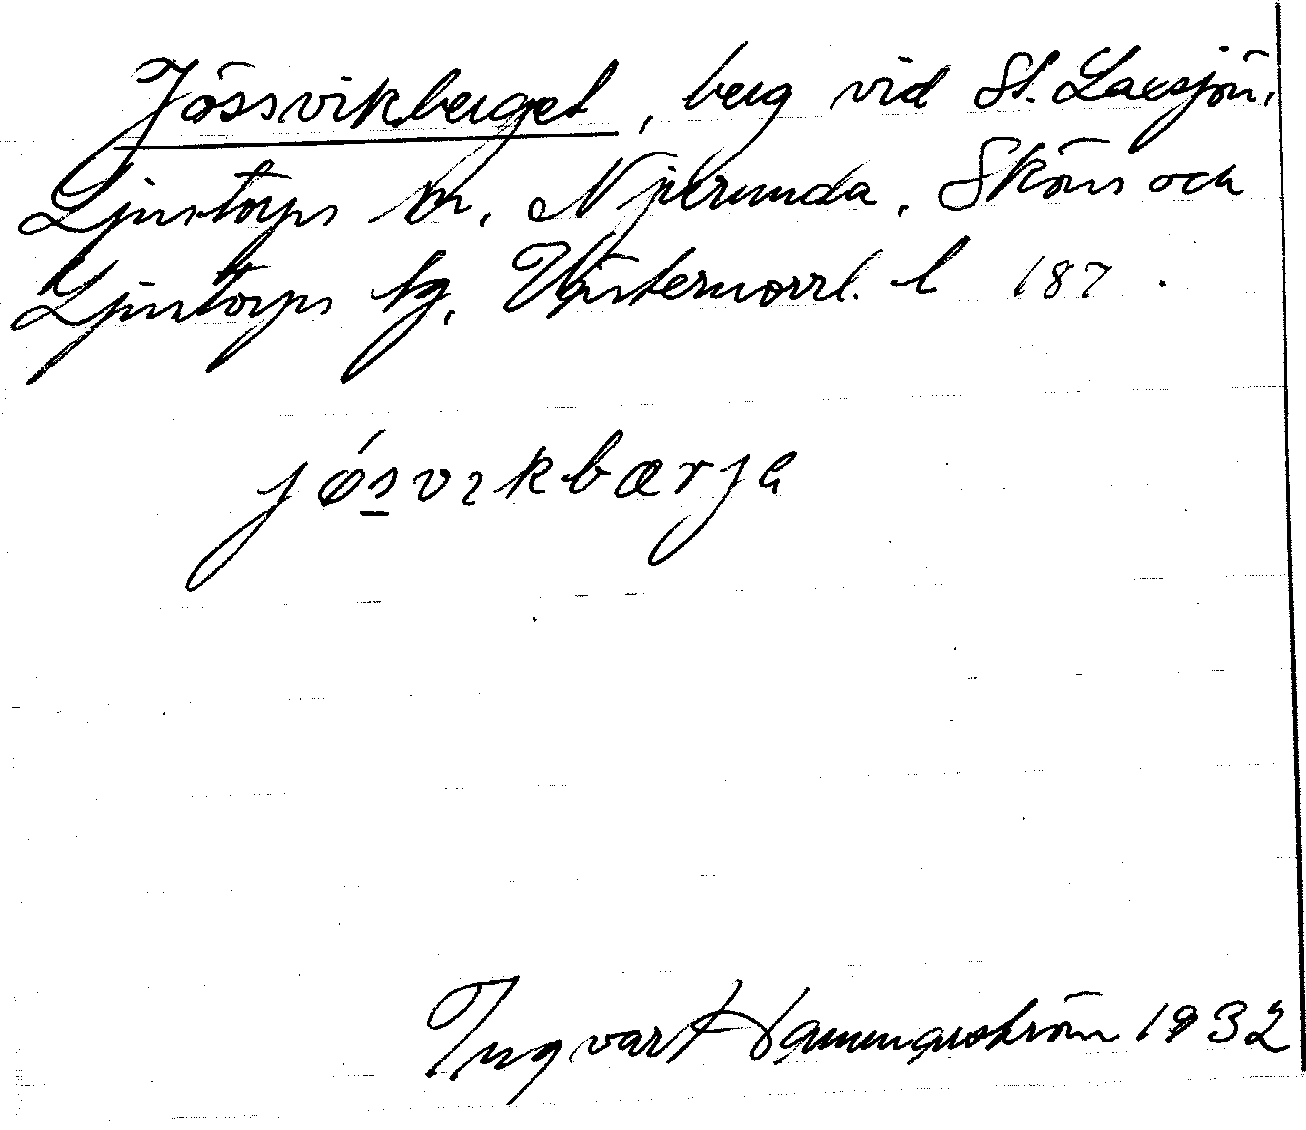 Jössvikberget, berg vid St. Laxsjön,
Ljustorps sn, Njurunda, Sköns och
Ljustorps tg, Västernorrl. l 187.
jǿsvɪkbærja
Ingvar Hammarström 1932